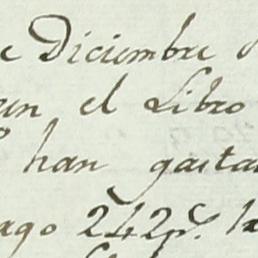 e Diciembre
en el Libro
han gasta
ago 242p.s la